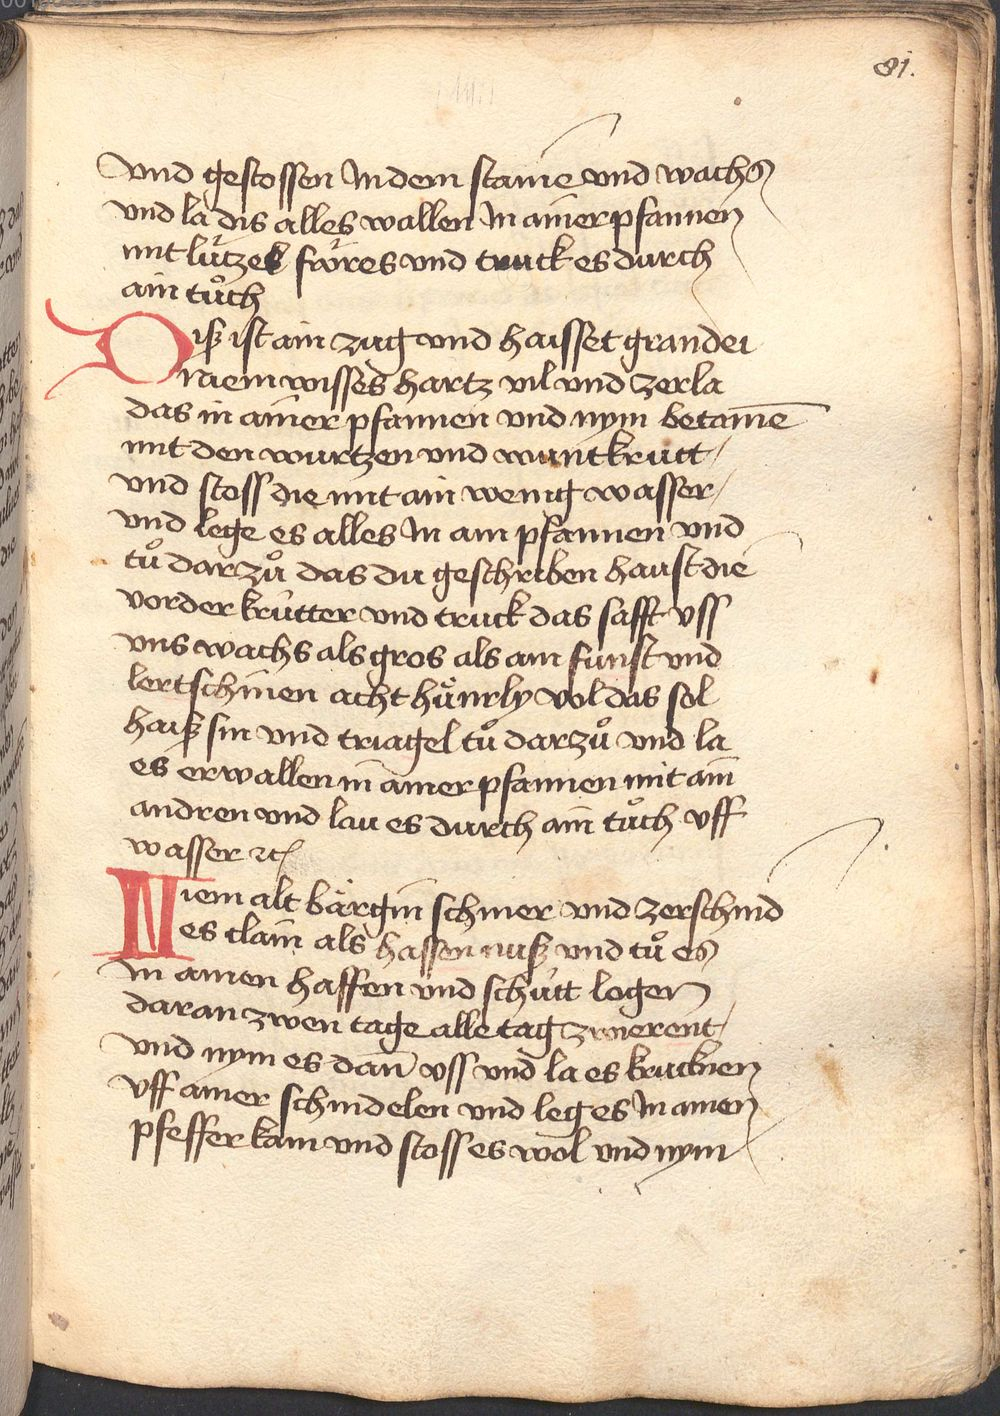 81.
vnd gestossen In dem stainē vnd wachs
vnd la dis alles wallen In ainer pfannen
mit lützes föres vnd truck es durch
ain tůch
Diß ist ain zug vnd haisset grandei
niem wisses hartz vil vnd zerla
das in ainer pfannen vnd nym betamē
mit den wurtzen vnd wuntkrutt
vnd stoss die mit ain wenig wasser
vnd lege es alles In ain pfannen vnd
tů dar zů das du geschriben haust die
vorder krütter vnd truck das safft vss
vns wachs als gros als ain funst vnd
lertschinen acht hünrly vol das sol
haiß sin vnd triagel tů dar zů vnd la
es erwallen in ainer pfannen mit ain
andren vnd lau es durch ain tůch vff
wasser ꝛc
Niem alt bärgin schmer vnd zerschnid
es clain als hassen nuß vnd tů es
In ainen haffen vnd schütt logen
daran zwen tage alle tag zwierent
vnd nym es dan̄ vss vnd la es trucknen
vff ainer schindelen vnd leg es In ainen
pfefferkain vnd stoss es wol vnd nym